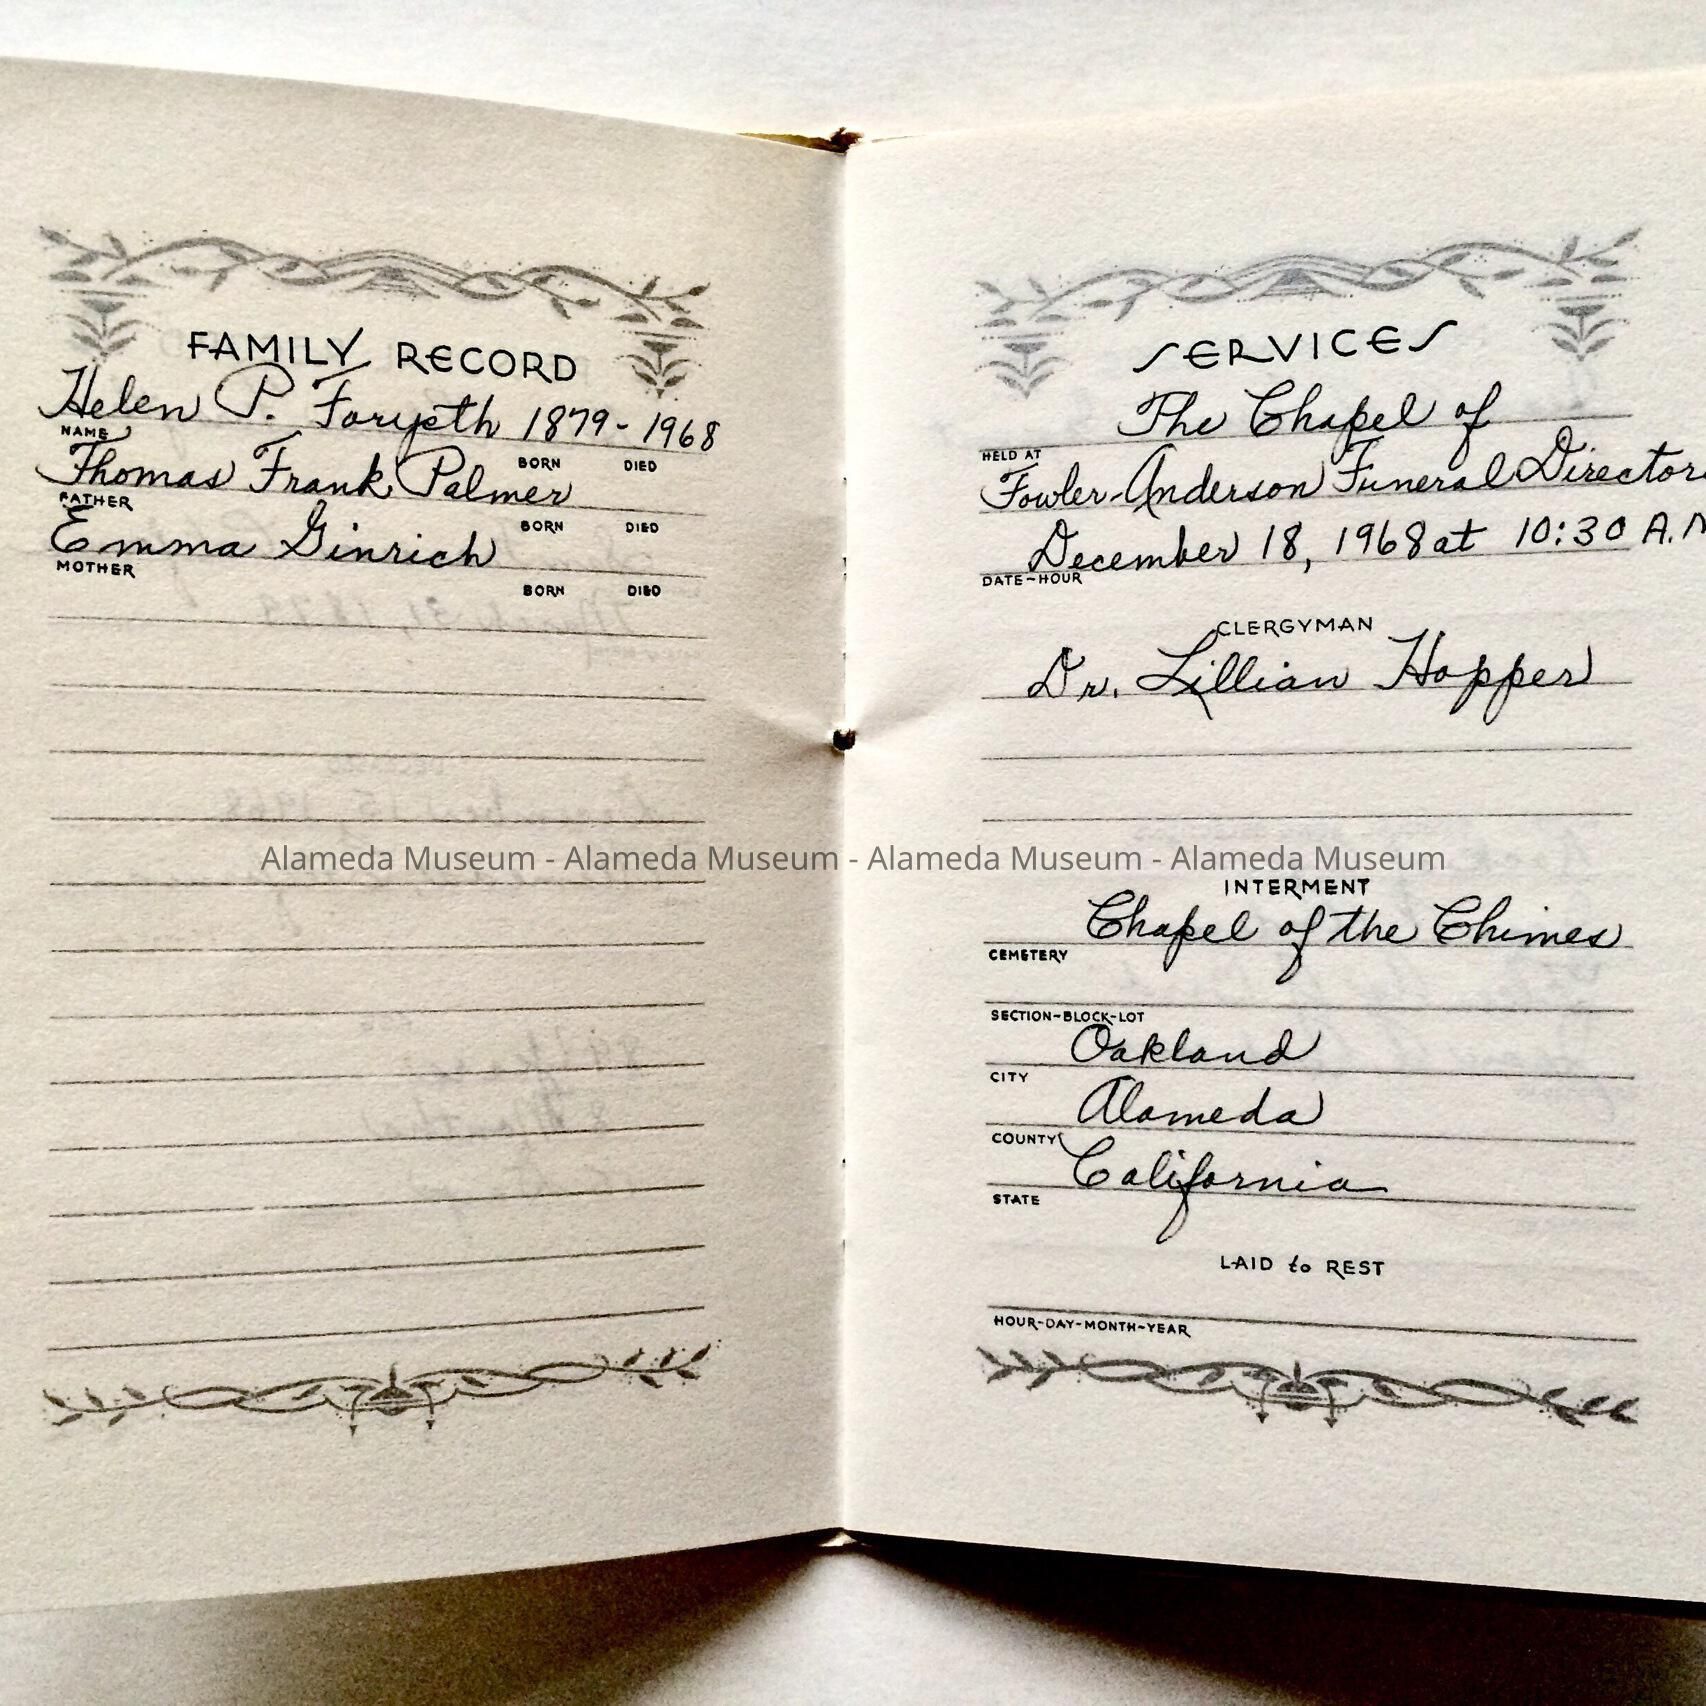 FAMILY RECORD
Helen P. Forysth 1879-1968
NAME BORN DIED
Thomas Frank Palmer
FATHER BORN DIED
Emma Ginrich
MOTHER BORN DIED
SERVICES
The Chapel of
HELD AT
Fowler-Anderson Funeral Director
December 18, 1968 at 10:30 A.M
DATE-HOUR
CLERGYMAN
Dr. Lillian Hopper
Alameda Museum - Alameda Museum - Alameda Museum - Alameda Museum
INTERMENT
Chapel of the Chimes
CEMETERY
SECTION-BLOCK-LOT
Oakland
CITY
Alameda
COUNTY
California
STATE
LAID to REST
HOUR-DAY-MONTH-YEAR